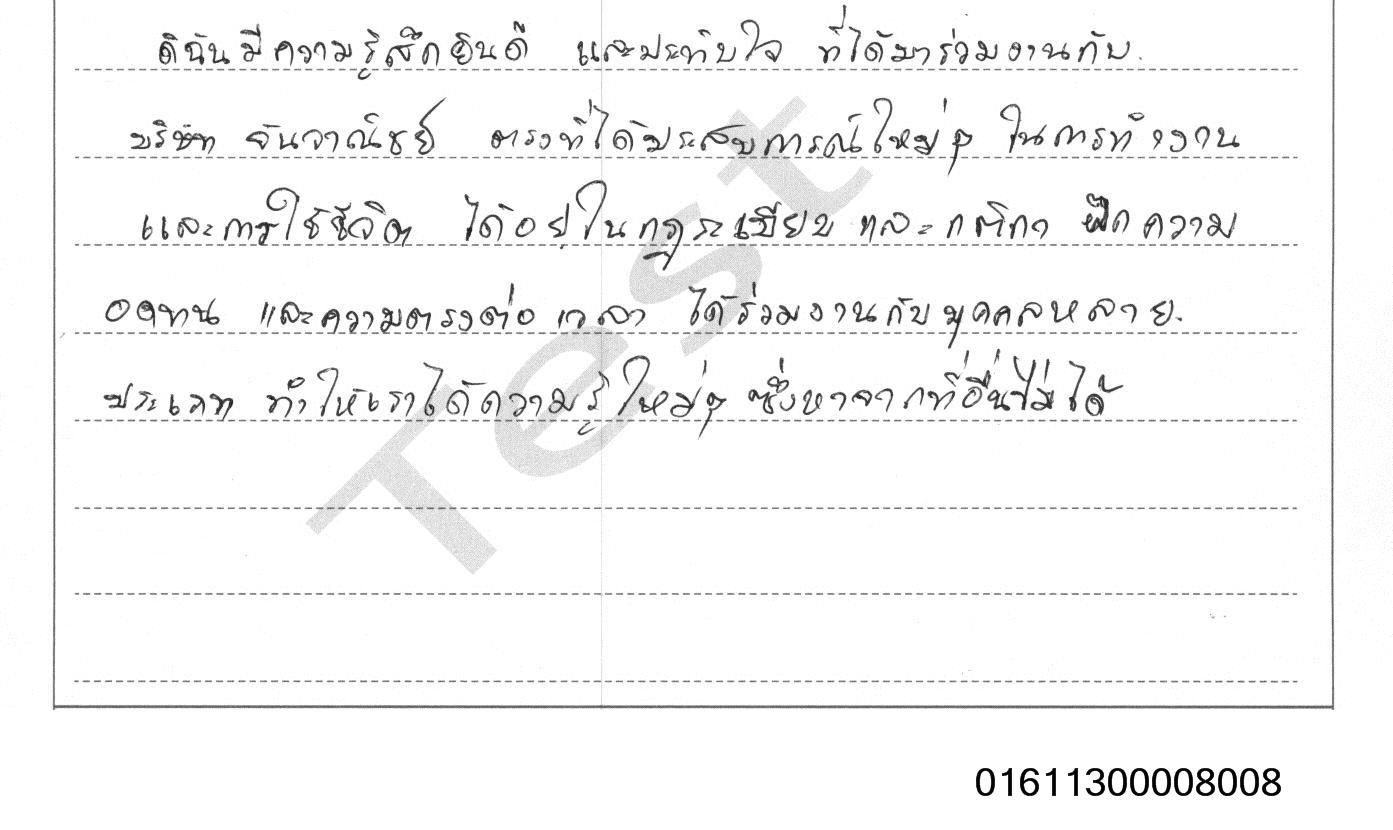 ดิฉันมีความรู้สึกยินดี และประทับใจ ที่ได้มาร่วมงานกับ
บริษัท จันวาณิชย์ ตรงที่ได้ประสบการณ์ใหม่ๆ ในการทำงาน
และการใช้ชีวิต ได้อยู่ในกฎระเบียบ และกติกา ฝึกความ
อดทน และความตรงต่อเวลา ได้ร่วมงานกับบุคคลหลาย
ประเภท ทำให้เราได้ความรู้ใหม่ๆ ซึ่งหาจากที่อื่นไม่ได้
Test
01611300008008